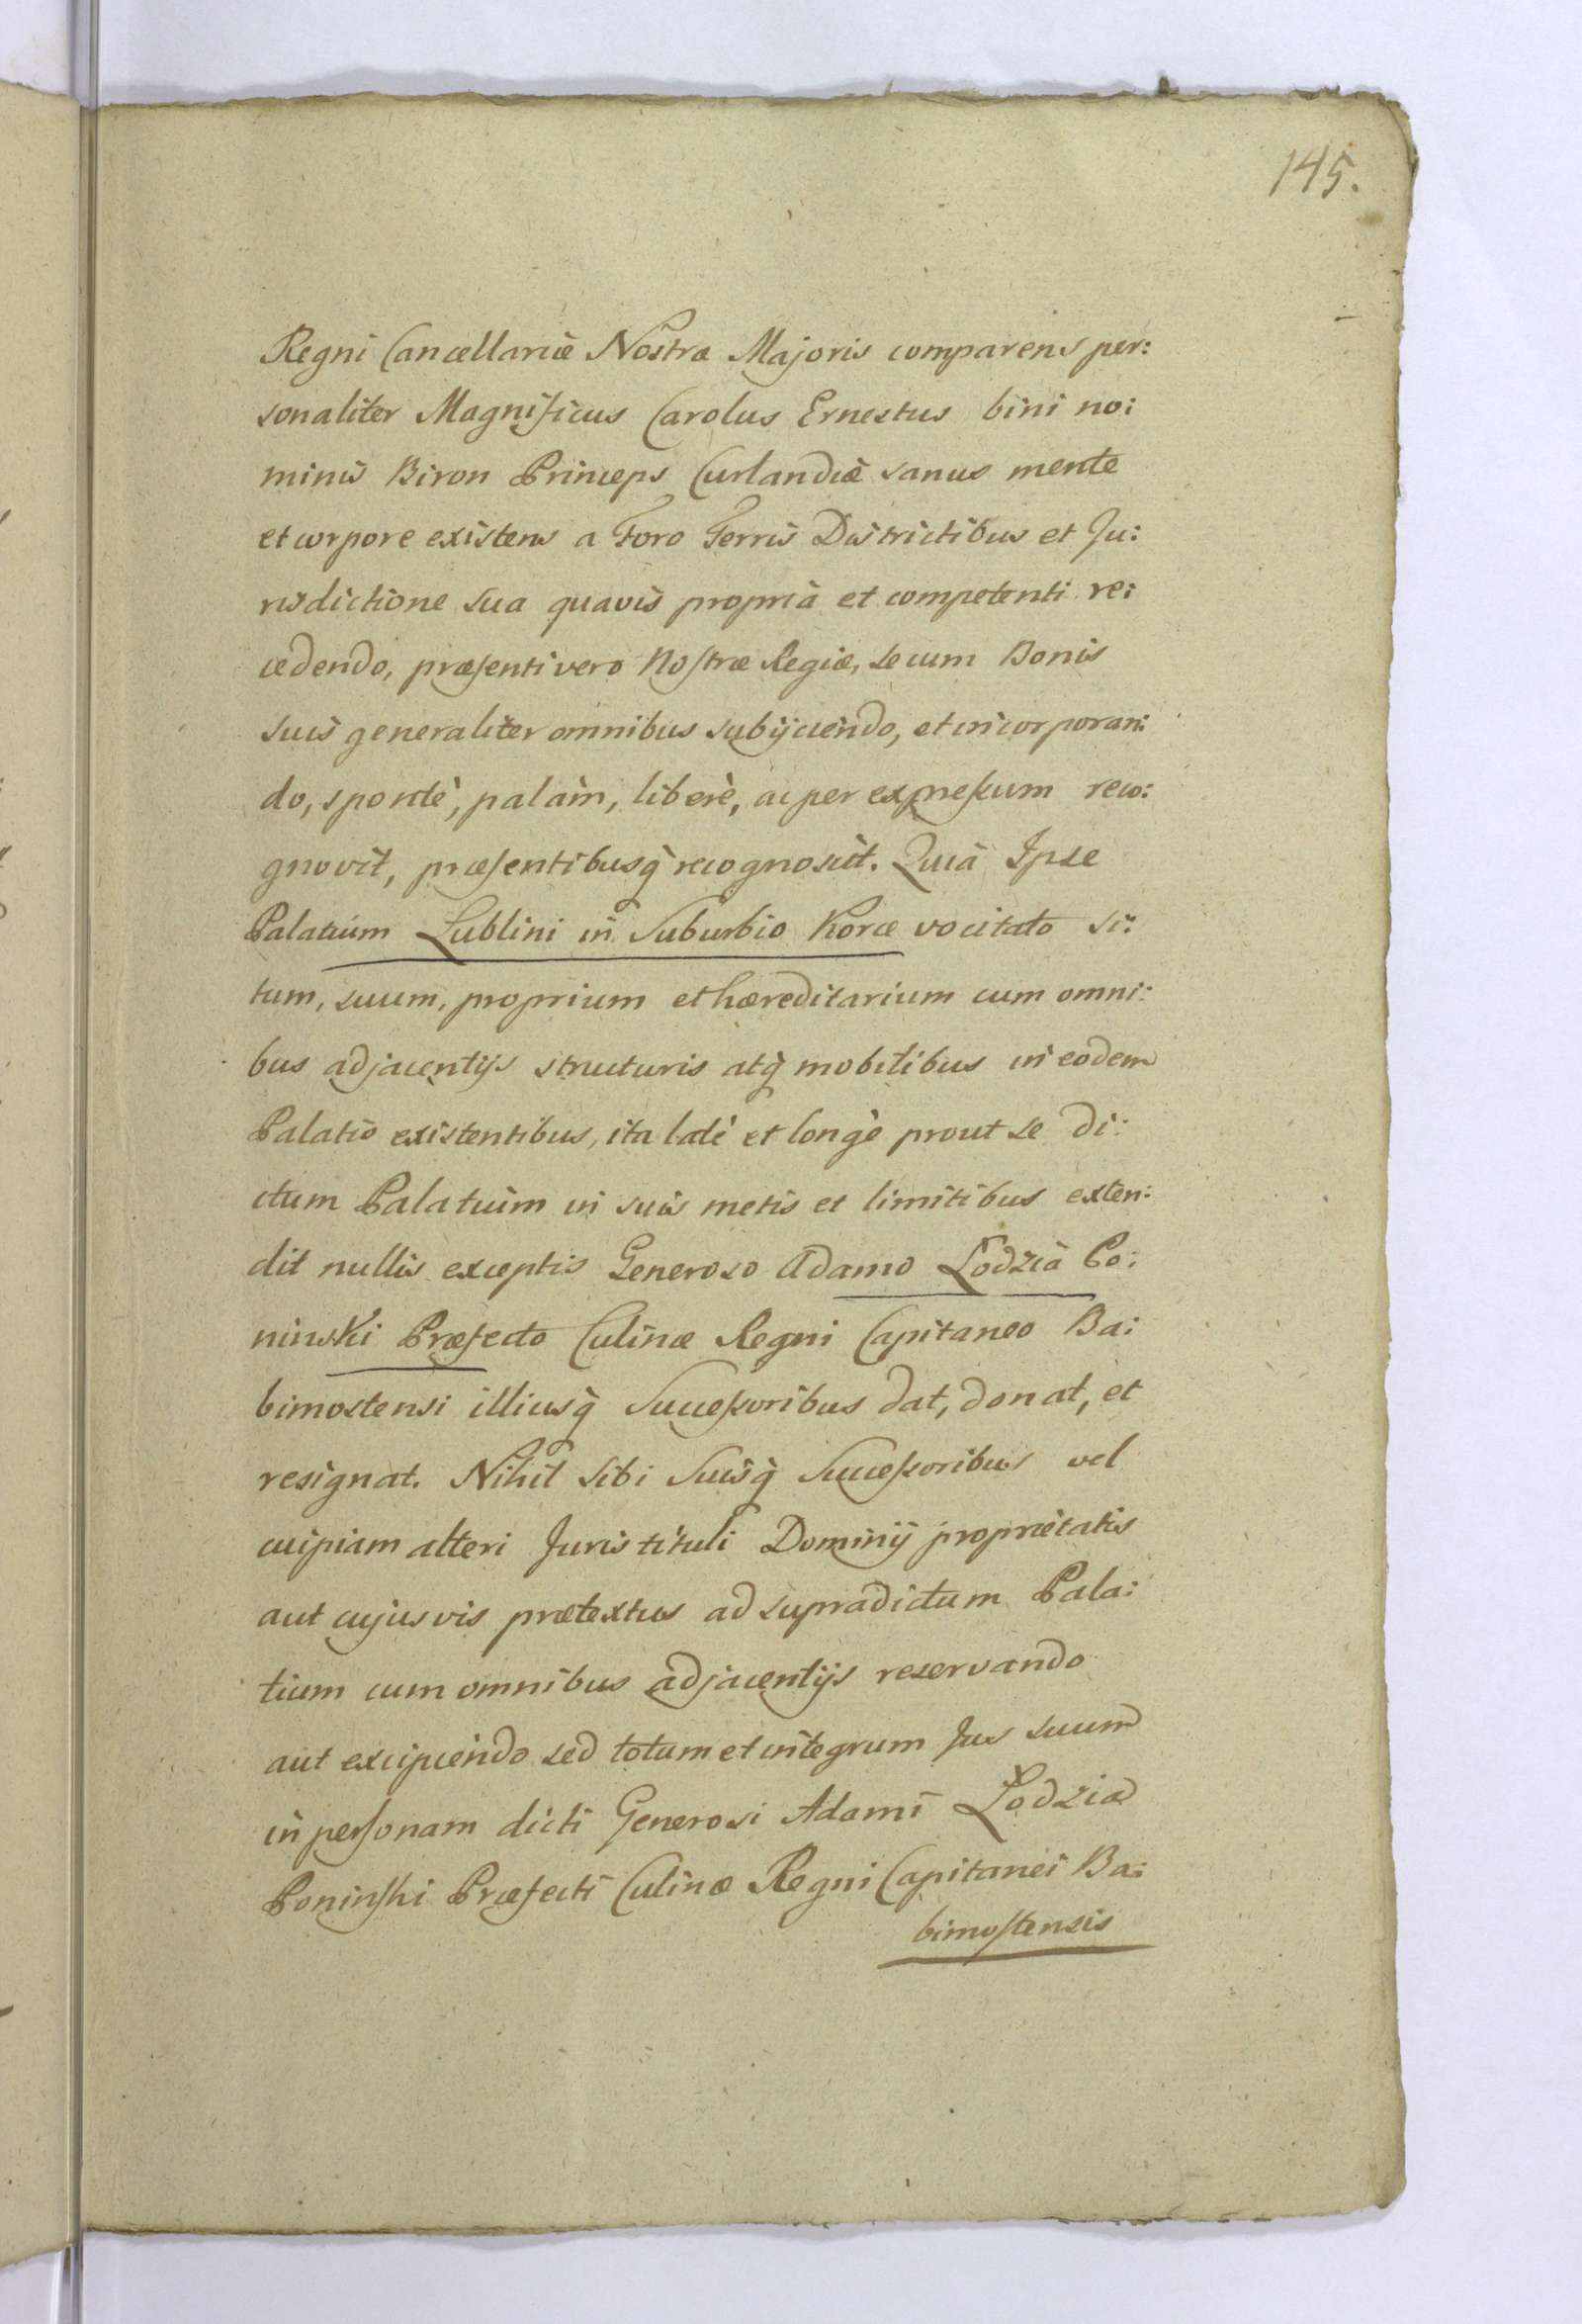 145.
Regni Cancellariæ Nostræ Majoris comparens per:
sonaliter Magnificus Carolus Ernestus bini no:
minis Biron Princeps Curlandiæ sanus mente
et corpore existens a Foro Terris Districtibus et Ju:
risdictione sua quavis propriâ et competenti re:
cedendo, præsenti vero Nostræ Regiæ, se cum Bonis
suis generaliter omnibus subijciendo, et incorporan:
do, spontè, palàm, liberè, ac per expressum reco:
gnovit, præsentibusq̀ recognoscit. Quià Ipse
Palatium Lublini in Suburbio Korce vocitato si:
tum, suum, proprium et hæreditarium cum omni:
bus adjacentijs structuris atq̀ mobilibus in eodem
Palatio existentibus, ita latè et longè prout se di:
ctum Palatium in suis metis et limitibus exten:
dit nullis exceptis Generoso Adamo Łodzià Po:
ninski Præfecto Culinæ Regni Capitaneo Ba:
bimostensi illiusq̀ Successoribus dat, donat, et
resignat. Nihil sibi Suisq̀ Successoribus vel
cuipiam alteri Juris tituli Dominij proprietatis
aut cujusvis prætextus ad supradictum Pala:
tium cum omnibus adjacentijs reservando
aut excipiendo sed totum et integrum Jus suum
in personam dicti Generosi Adami Łodzia
Poninski Præfecti Culinæ Regni Capitanei Ba:
bimostensis